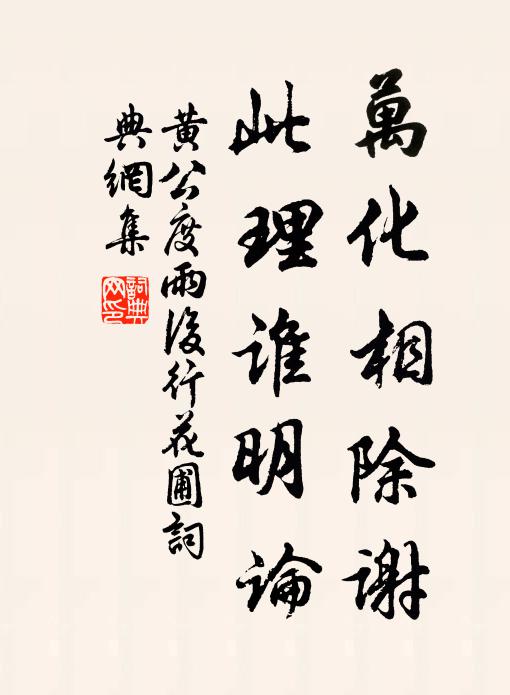 萬化相除謝
此理誰明論
黄公度雨後行花圃詞
典網集
詞典网印